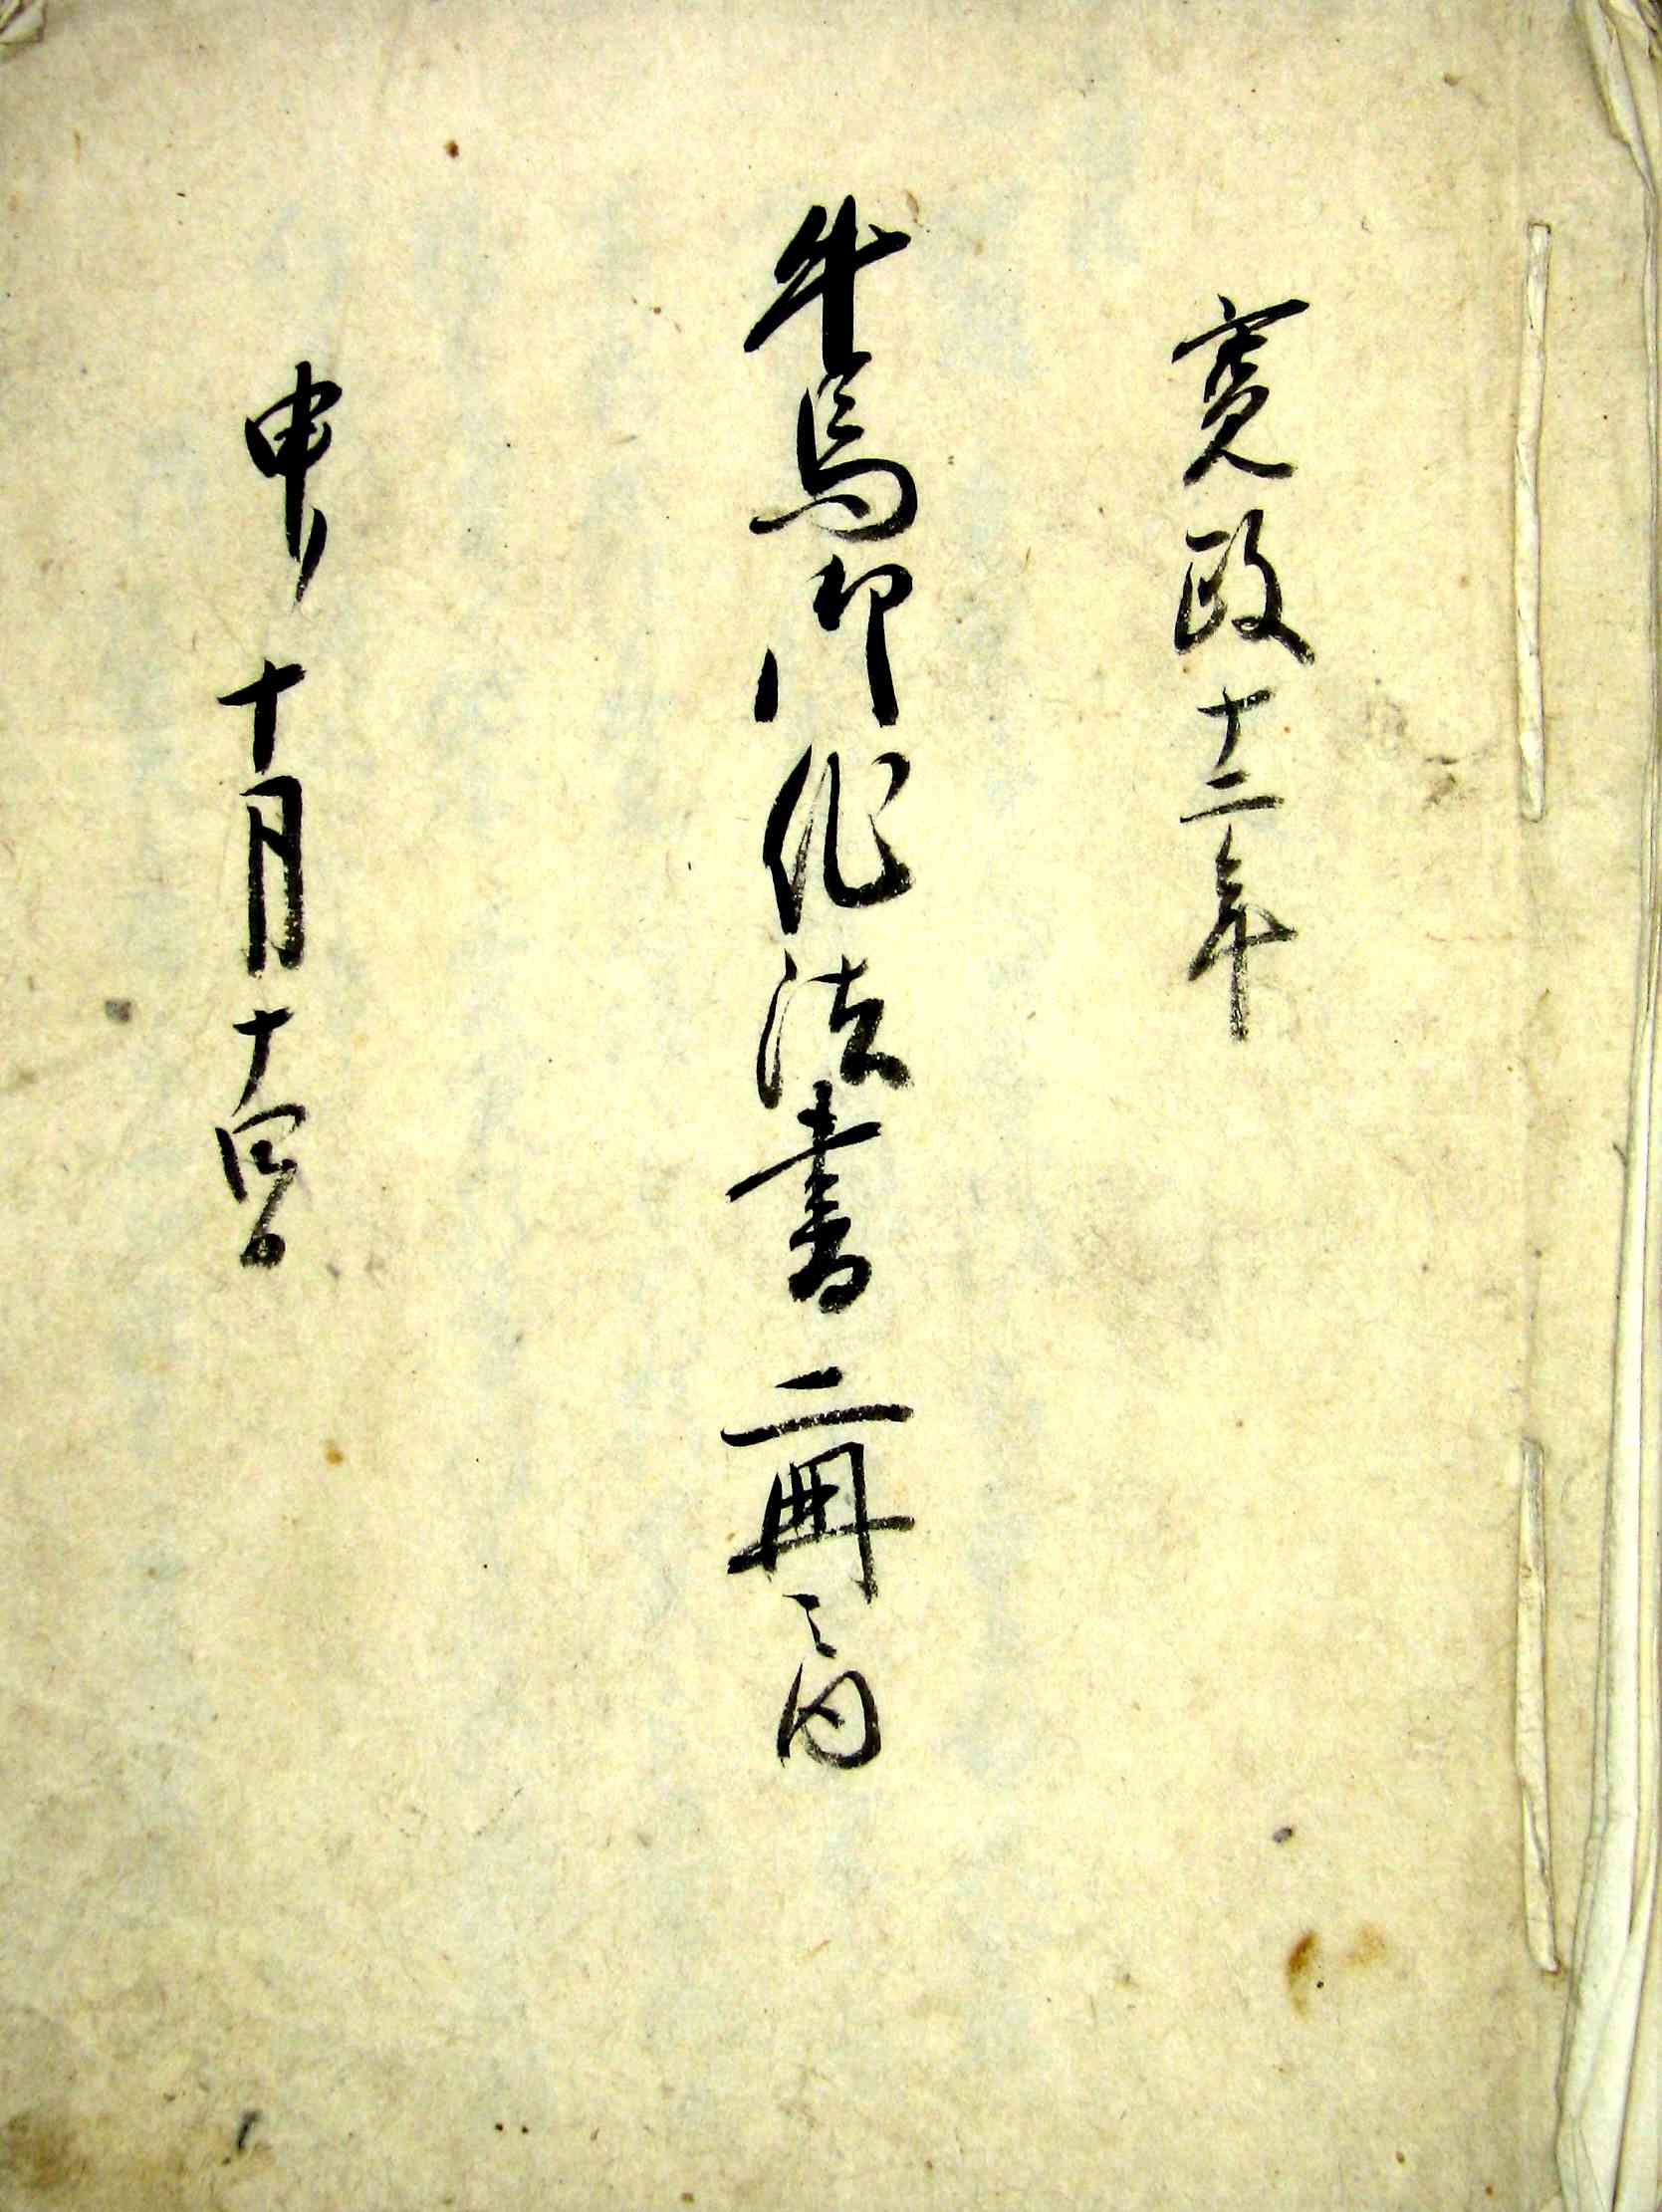 寛政十二年
牛馬御作法書 二冊之内
申ノ十月十四日